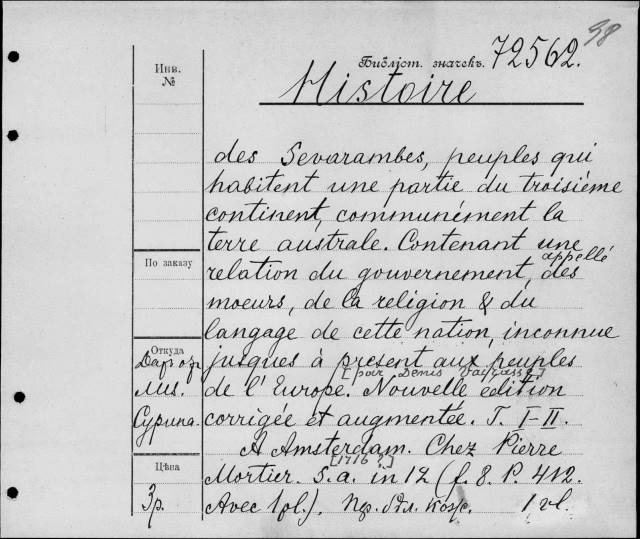 38
Библіот. значекъ. 72562.
Инв.
№
Histoire
des Sevarambes, peuples qui
habitent une partie du troisiéme
continent, communément la
terre australe. Contenant une
appellé
По заказу
relation du gouvernement, des
moeurs, de la religion & du
langage de cette nation, inconnue
Откуда
jusques à present aux peuples
Даръ
[par Denis
de l'Europe. Nouvelle edition
corrigée et augmentée. T. I-II.
A Amsterdam. Chez Pierre
Цѣна
[1716?]
Mortier. S. a. in 12 (f. 8. P. 412.
3 р.
Avec 1 pl.). Пер. 1 vl.